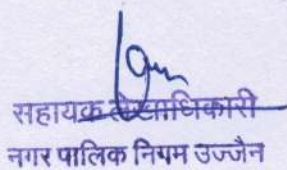 सहायक लेखाधिकारी
नगर पालिक निगम उज्जैन